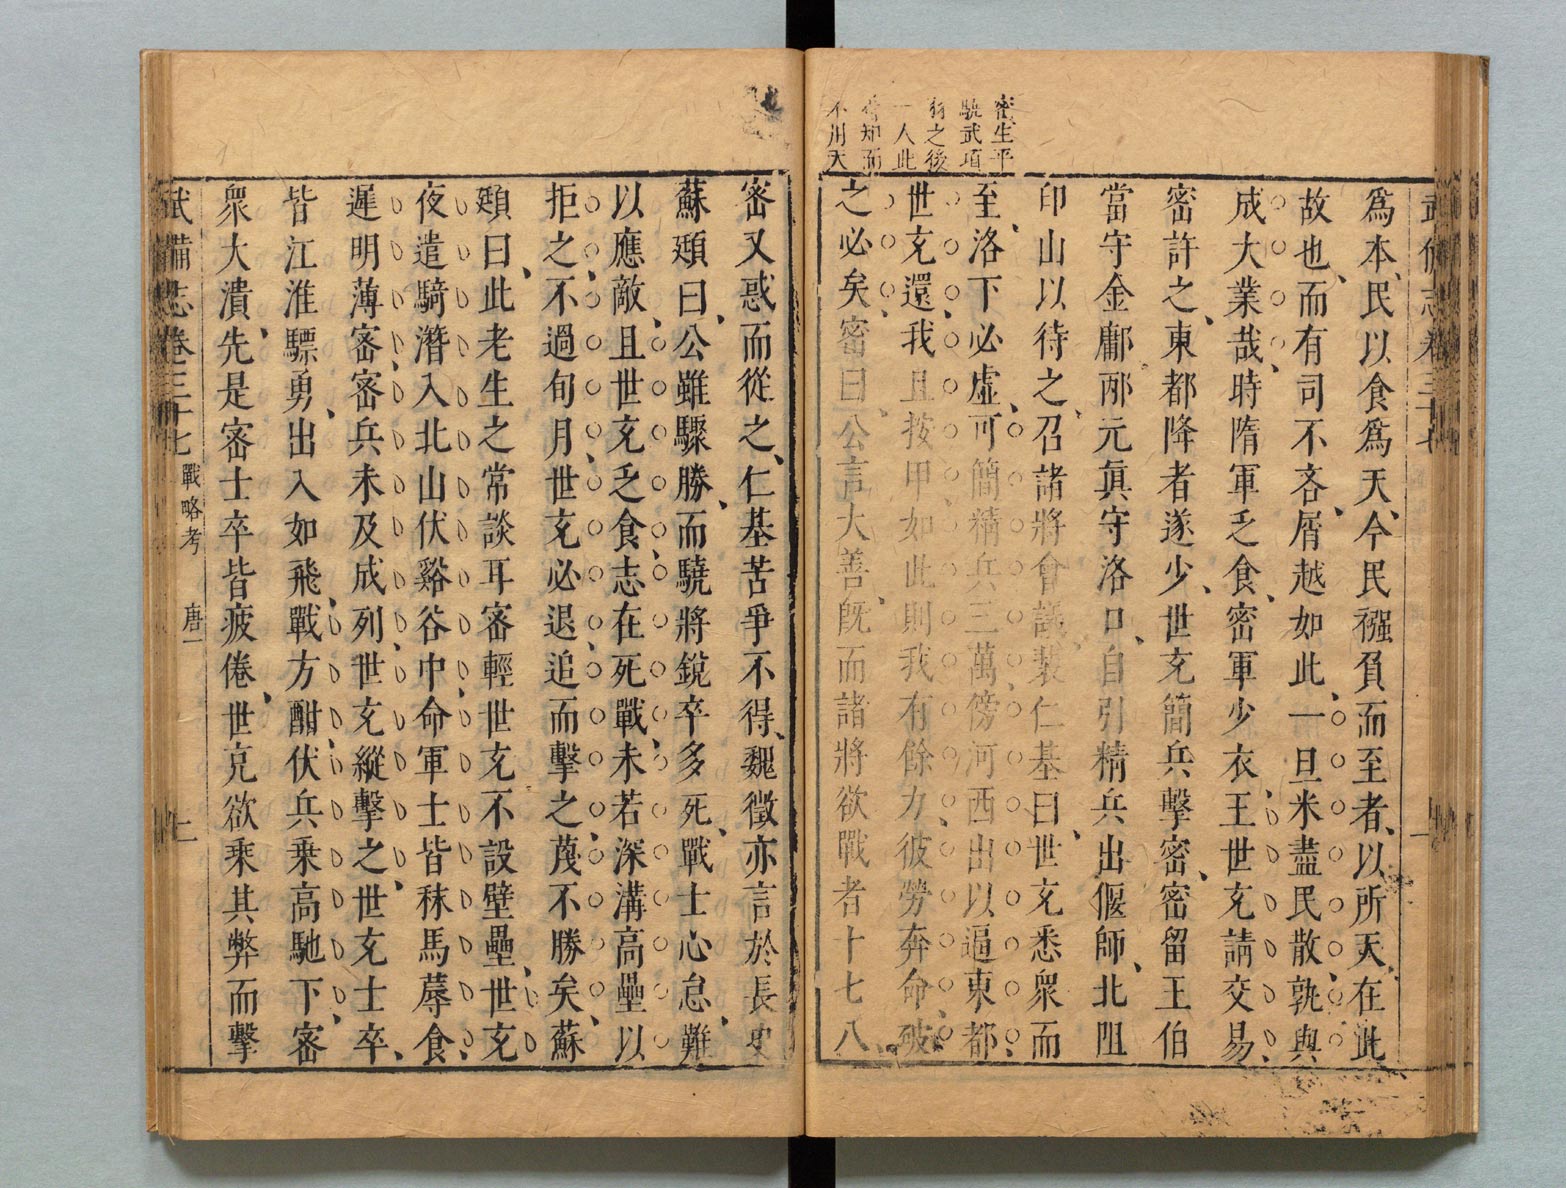 武備志卷三十七
一
密生平
驍武項
羽之後
一人此
不用天
爲本民以食爲天今民襁負而至者以所天在此
故也而有司不吝屑越如此一旦米盡民散孰與
成大業哉時隋軍乏食密軍少衣王世充請交易
密許之東都降者遂少世充簡兵擊密密留王伯
當守金鄘邴元眞守洛口自引精兵出偃師北阻
印山以待之召諸將會議裴仁基曰世充悉衆而
至洛下必虛可簡精兵三萬傍河西出以逼東都
世充還我且按甲如此則我有餘力彼勞奔命破
之必矣密曰公言大善旣而諸將欲戰者十七八
密又惑而從之仁基苦爭不得魏徵亦言於長史
蘇頲曰公雖驟勝而驍將銳卒多死戰士心怠難
以應敵且世充乏食志在死戰未若深溝高壘以
拒之不過旬月世充必退追而擊之蔑不勝矣蘇
頲曰此老生之常談耳密輕世充不設壁壘世充
夜遣騎潛入北山伏谿谷中命軍士皆秣馬蓐食
遲明薄密密兵未及成列世充縱擊之世充士卒
皆江淮驃勇出入如飛戰方酣伏兵乗高馳下密
衆大潰先是密士卒皆疲倦世充欲乗其弊而擊
武備志卷三十七 戰略考 唐一 二